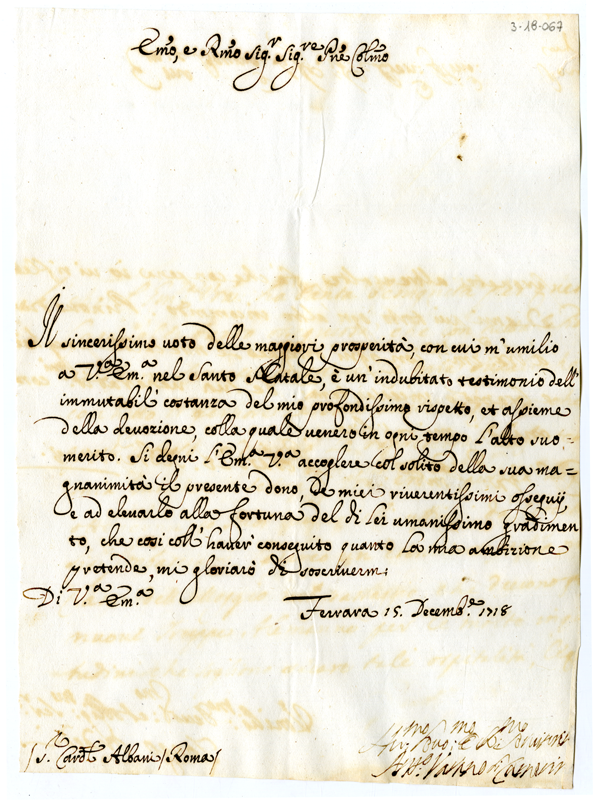 3-18-067
Emo, e Rmo Sigr Sigre Pne Colmo
Il sincerissimo voto delle maggiori prosperità, con cui m'umilio
a V.a Em.a nel Santo Natale, è un'indubitato testimonio dell'
immutabil' costanza del mio profondissimo rispetto, et assieme
della devozione, colla quale venero in ogni tempo l'alto suo
merito. Si degni l'Em.a V.a accoglere col solito della sua ma=
gnanimità il presente dono, De miei riverentissimi ossequij,
e ad elevarlo alla fortuna del di Lei umanissimo gradimen
to, che così coll' haver' conseguito quanto la mia ambizione
pretende, mi gloriarò di soscriverm:
Di V.a Em.a
Ferrara 15. Decemb.e 1718
/S.r Card.l Albani /Roma/